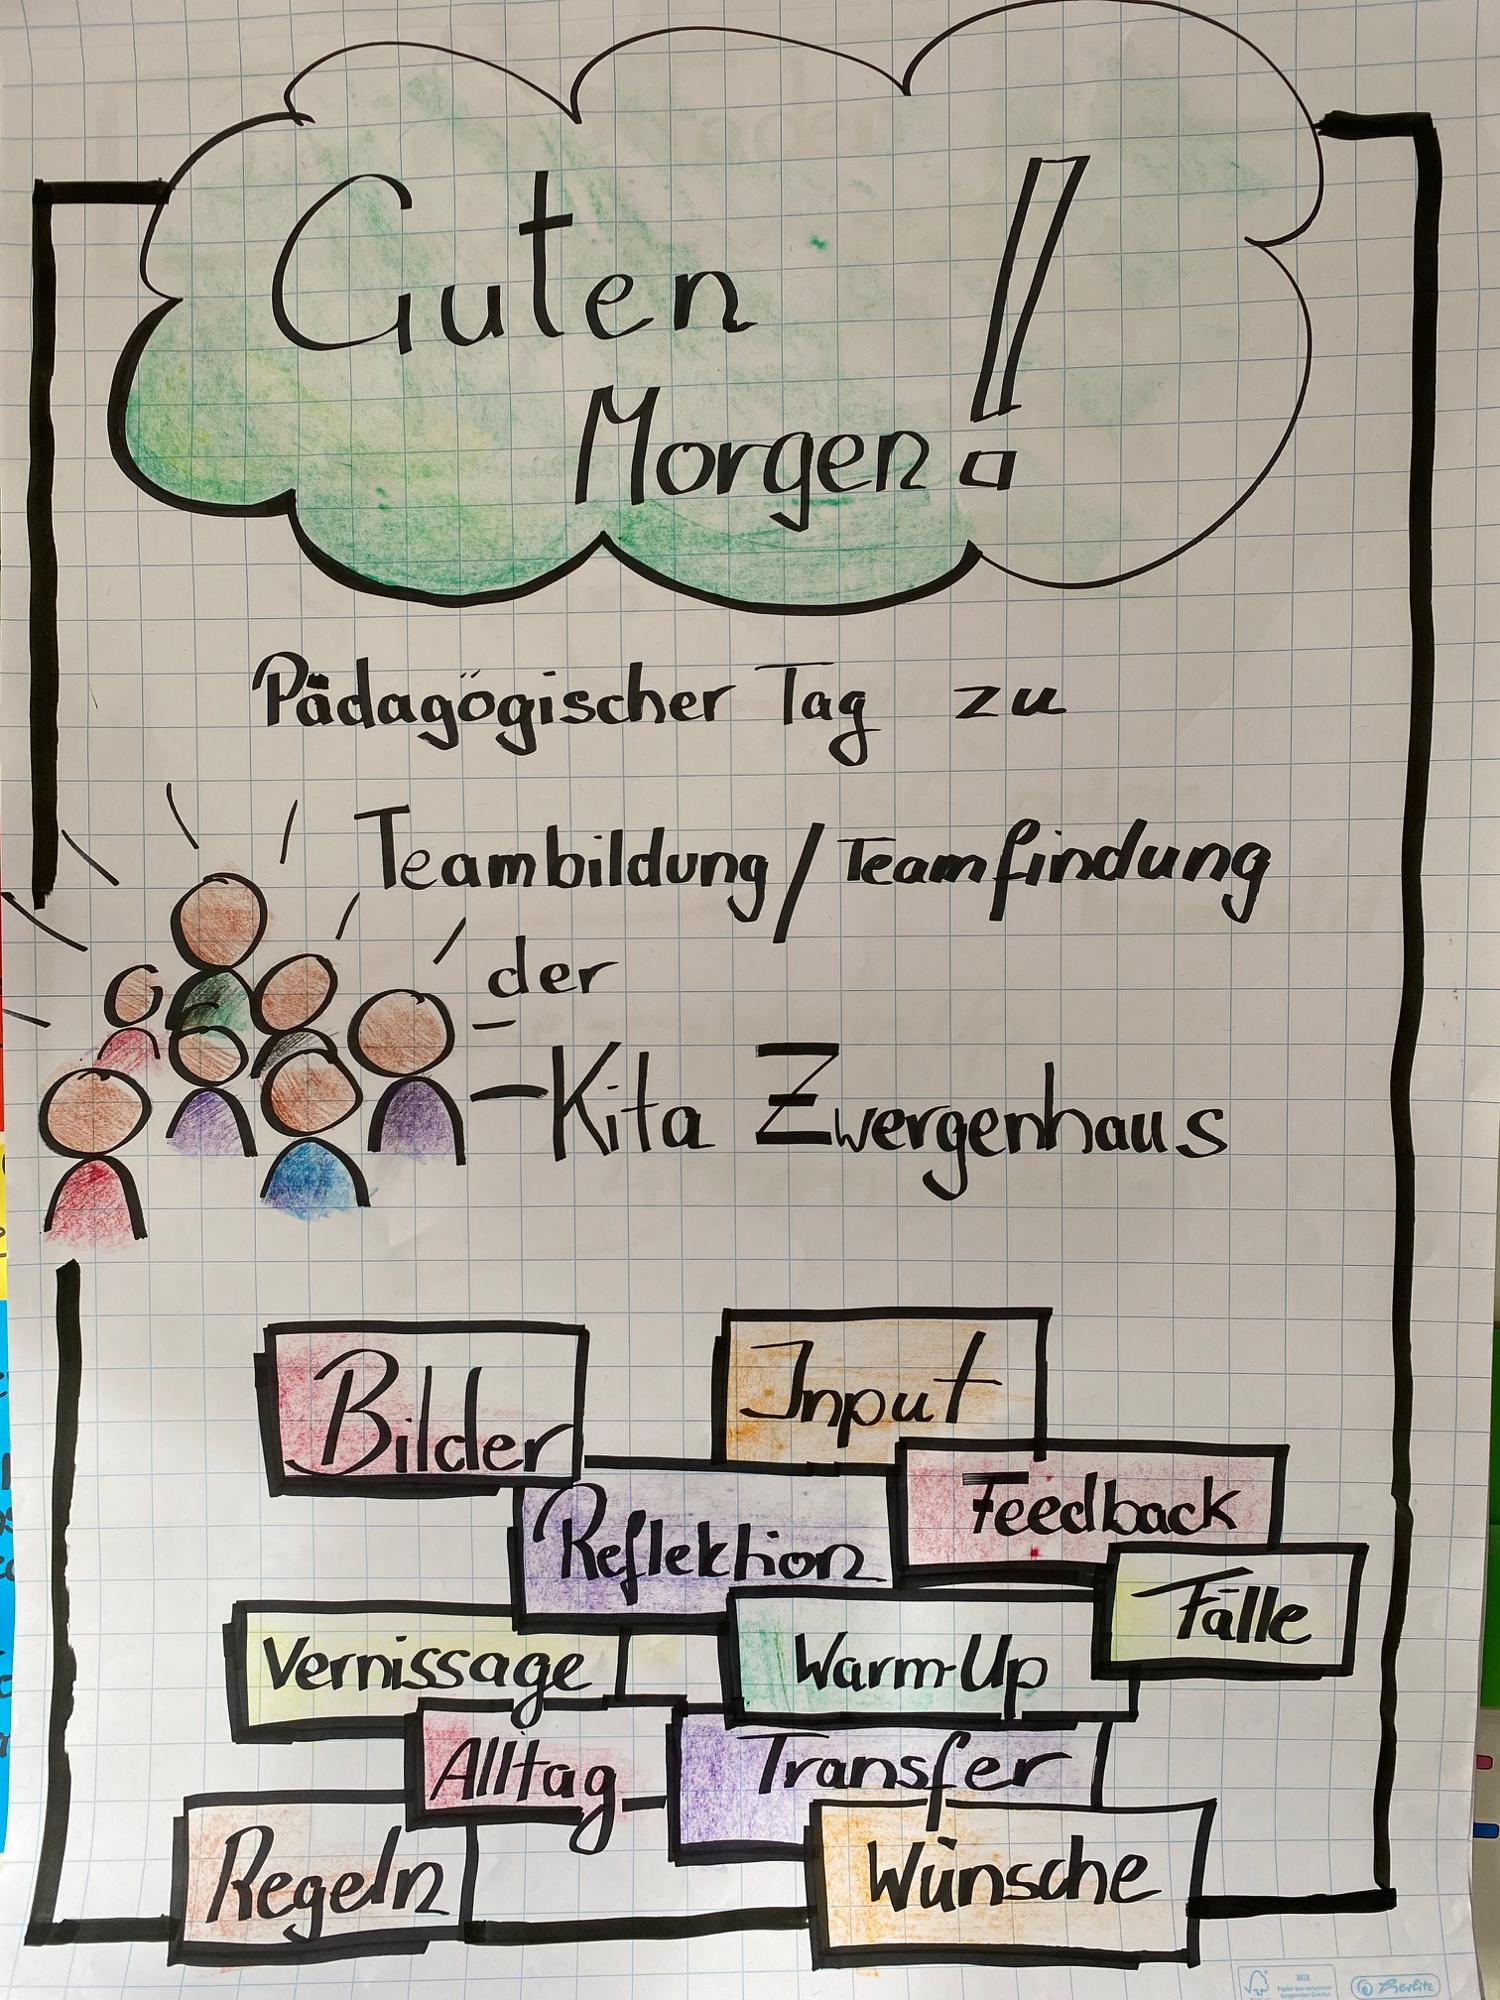 Guten
Morgen!
Pädagögischer Tag zu
Teambildung/Teamfindung
der
Kita Zwergenhaus
Bilder
Input
Reflektion
Feedback
Fälle
Vernissage
Warm-Up
Alltag
Transfer
Regeln
Wünsche
MIX
Herlitz